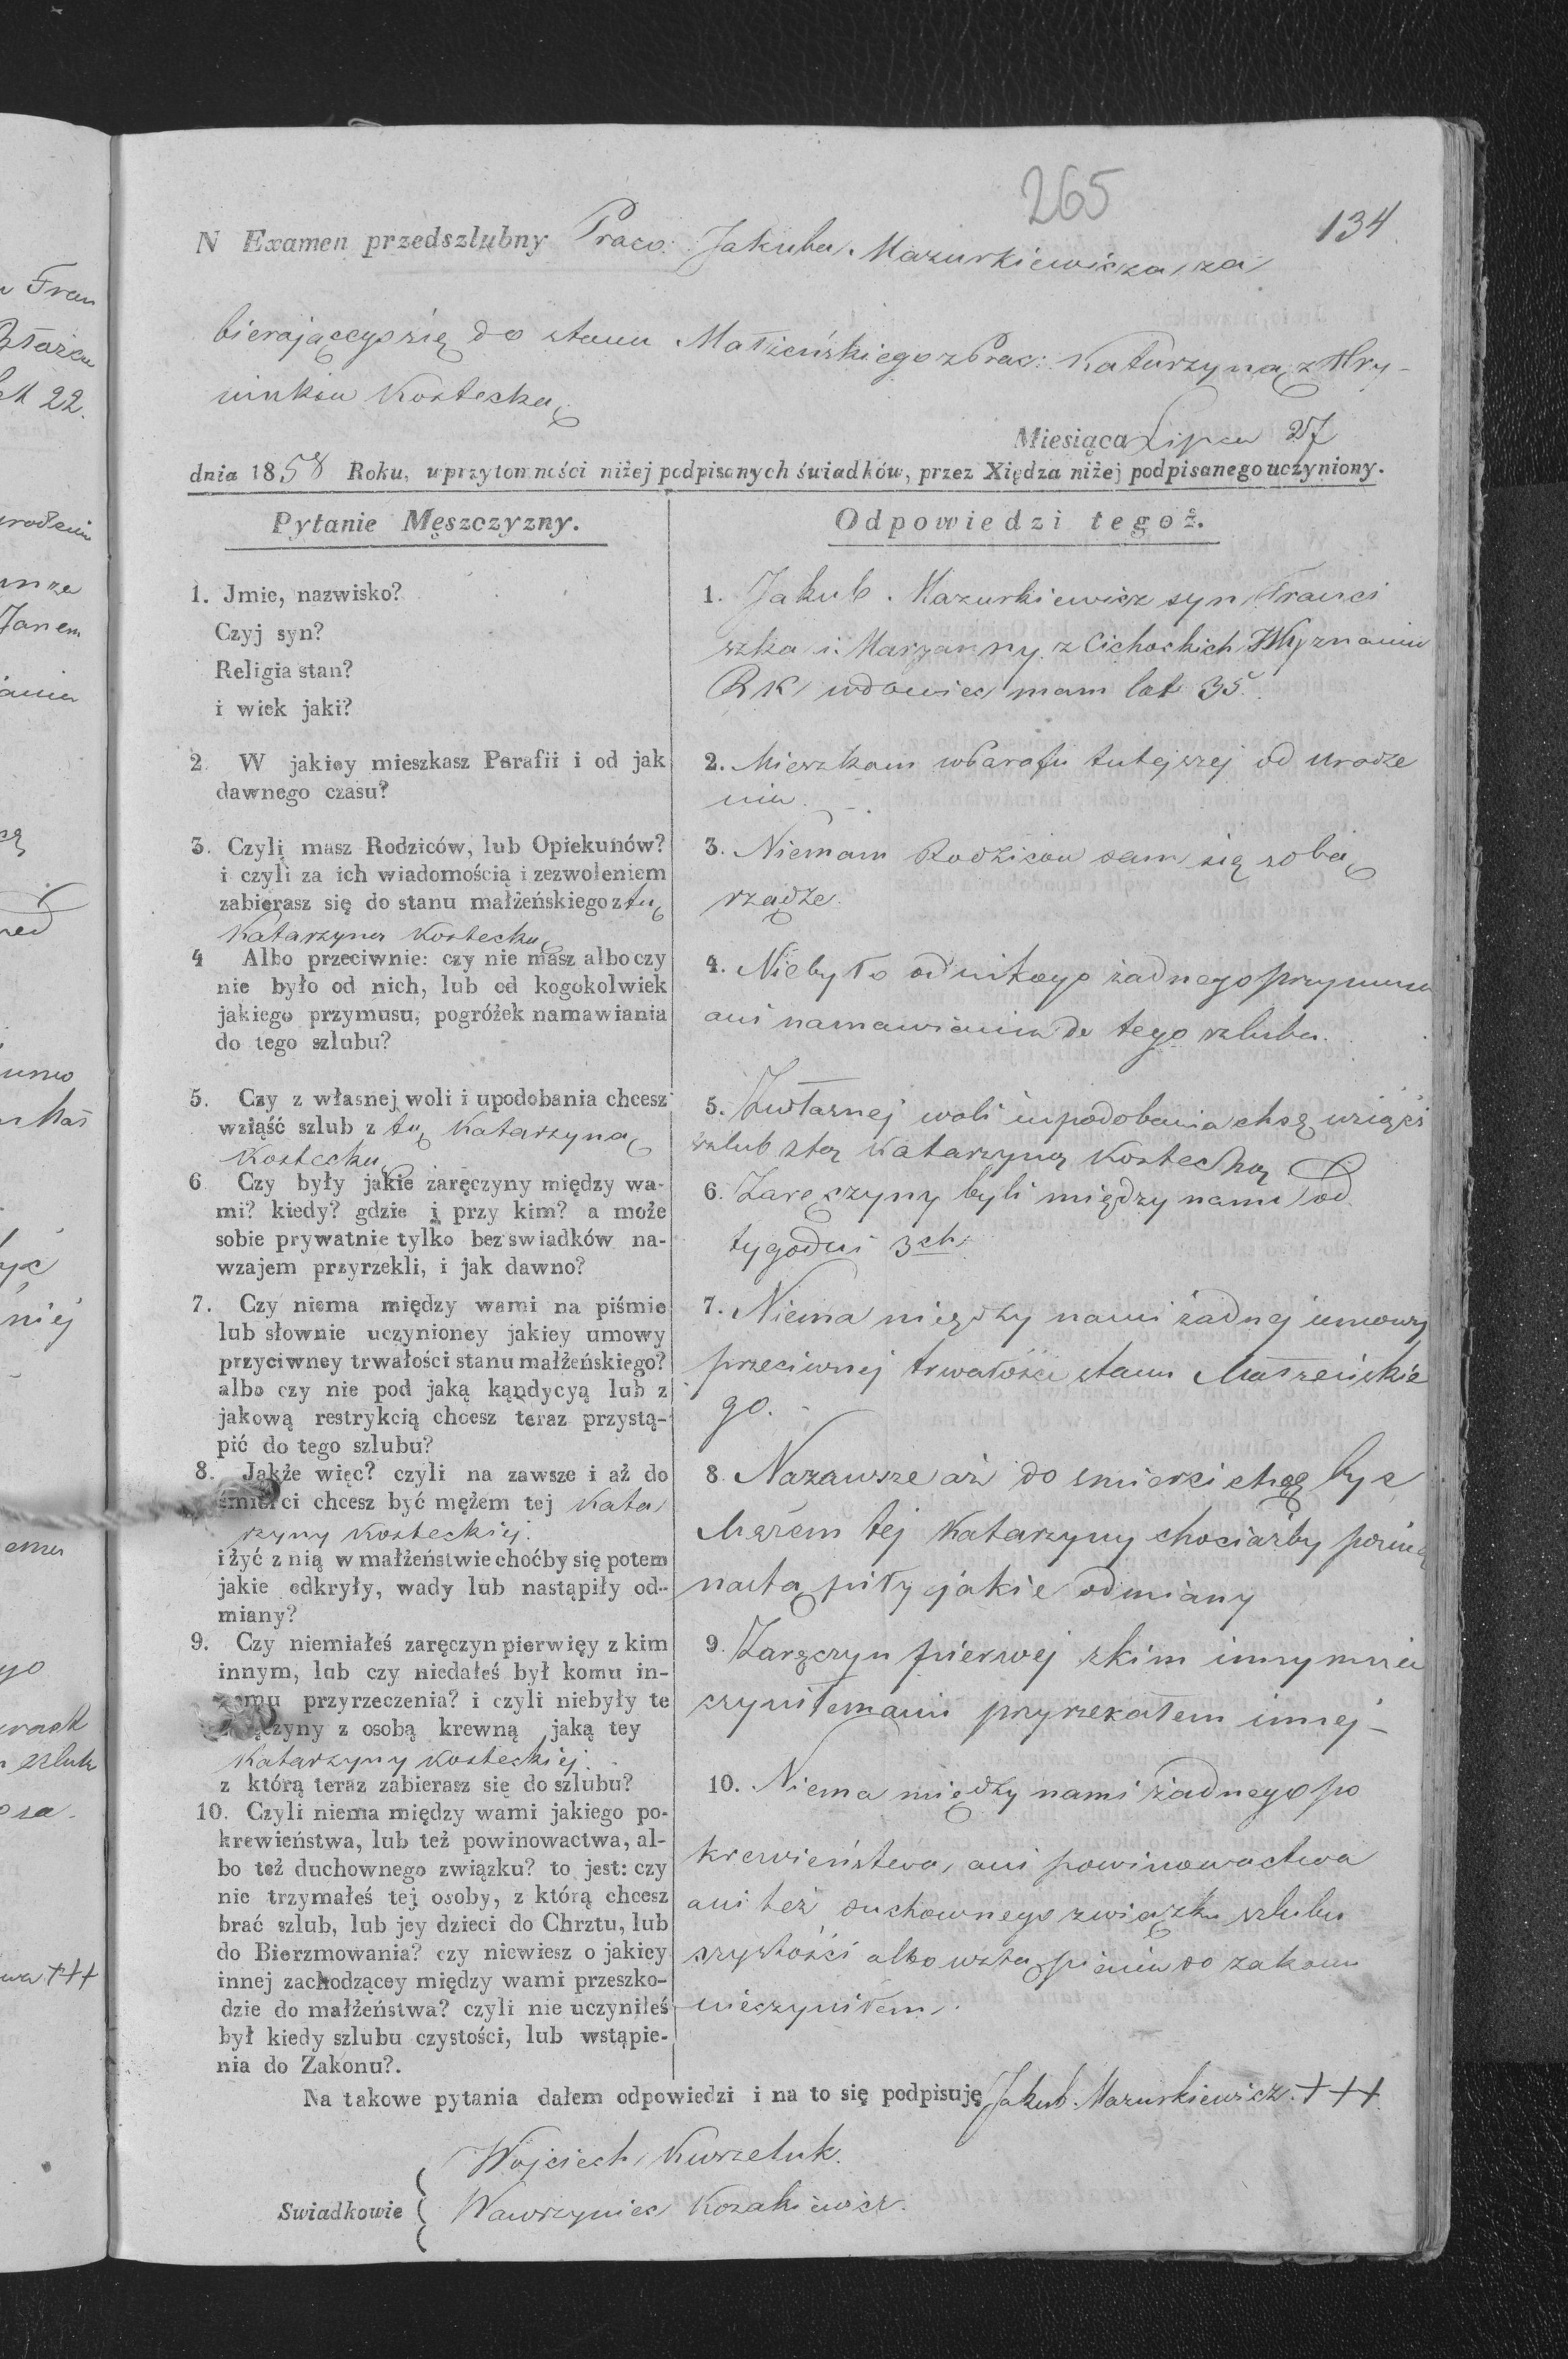 265
134
N Examen przedszlubny Praco: Jakuba Mazurkiewicza za
bierającego się do stanu Małżeńskiego z Prac: Katarzyną z Hry-
Kostecką
Miesiąca Lipca 27
dnia 1858 Roku, w przytomności niżej podpisanych świadków, przez Xiędza niżej podpisanego uczyniony.
Pytanie Męszczyzny.
1. Jmie, nazwisko?
Czyj syn?
Religia stan?
i wiek jaki?
2. W jakiey mieszkasz Parafii i od jak
dawnego czasu?
3. Czyli masz Rodziców, lub Opiekunów?
i czyli za ich wiadomością i zezwoleniem
zabierasz się do stanu małżeńskiego z tą
Katarzyną Kostecką
4 Albo przeciwnie: czy nie masz albo czy
nie było od nich, lub od kogokolwiek
jakiego przymusu, pogróżek namawiania
do tego szlubu?
5. Czy z własnej woli i upodobania chcesz
wziąść szlub z tą Katarzyną
Kostecką
6 Czy były jakie zaręczyny między wa-
mi? kiedy? gdzie i przy kim? a może
sobie prywatnie tylko bez swiadków na-
wzajem przyrzekli, i jak dawno?
7. Czy niema między wami na piśmie
lub słownie uczynioney jakiey umowy
przyciwney trwałości stanu małżeńskiego?
albo czy nie pod jaką kąndycyą lub z
jakową restrykcią chcesz teraz przystą-
pić do tego szlubu?
8. Jakże więc? czyli na zawsze i aż do
śmierci chcesz być mężem tej Kata
rzyny Kosteckiej.
i żyć z nią w małżeństwie choćby się potem
jakie odkryły, wady lub nastąpiły od-
miany?
9. Czy niemiałeś zaręczyn pierwięy z kim
innym, lub czy niedałeś był komu in-
nemu przyrzeczenia? i czyli niebyły te
zaręczyny z osobą krewną jaką tey
Katarzyny Kosteckiej.
z którą teraz zabierasz się do szlubu?
10. Czyli niema między wami jakiego po-
krewieństwa, lub też powinowactwa, al-
bo też duchownego związku? to jest: czy
nie trzymałeś tej osoby, z którą chcesz
brać szlub, lub jey dzieci do Chrztu, lub
do Bierzmowania? czy niewiesz o jakiey
innej zachodzącey między wami przeszko-
dzie do małżeństwa? czyli nie uczyniłeś
był kiedy szlubu czystości, lub wstąpie-
nia do Zakonu?.
Odpowiedzi tegoż.
1. Jakub Mazurkiewicz syn Franci
szka i Maryanny z Cichockich Wyznania
RK wdowiec mam lat 35.
2. Mieszkam w Parafii tutejszej od urodze
nia.
3. Niemam Rodziców sam się sobą
rządze.
4. Niebyło od nikogo żadnego przymusu
ani namawiania do tego szlubu.
5. Zwłasnej woli i upodobania chcę wziąść
szlub z tą Katarzyną Kostecką
6. Zaręczyny byli między nami od
tygodni 3ch
7. Niema między nami żadnej umowy
przeciwnej trwałości stanu Małżeńskie
go.
8. Nazawsze aż do smierci chcę być
Mężem tej Katarzyny chociażby
nastąpiły jakie odmiany
9. Zaręczyn pierwej zkim innym nie
czyniłem ani przyrzekałem innej-
10. Niema między nami żadnego po
krewieństwa, ani powinowactwa
ani też duchownego związku szlubu
czystości albo wstąpienia do zakonu
nieczyniłem.
Na takowe pytania dałem odpowiedzi i na to się podpisuję Jakub Mazurkiewicz +++
Swiadkowie
Wojciech Kurzeluk.
Wawrzyniec Kozakiewicz.